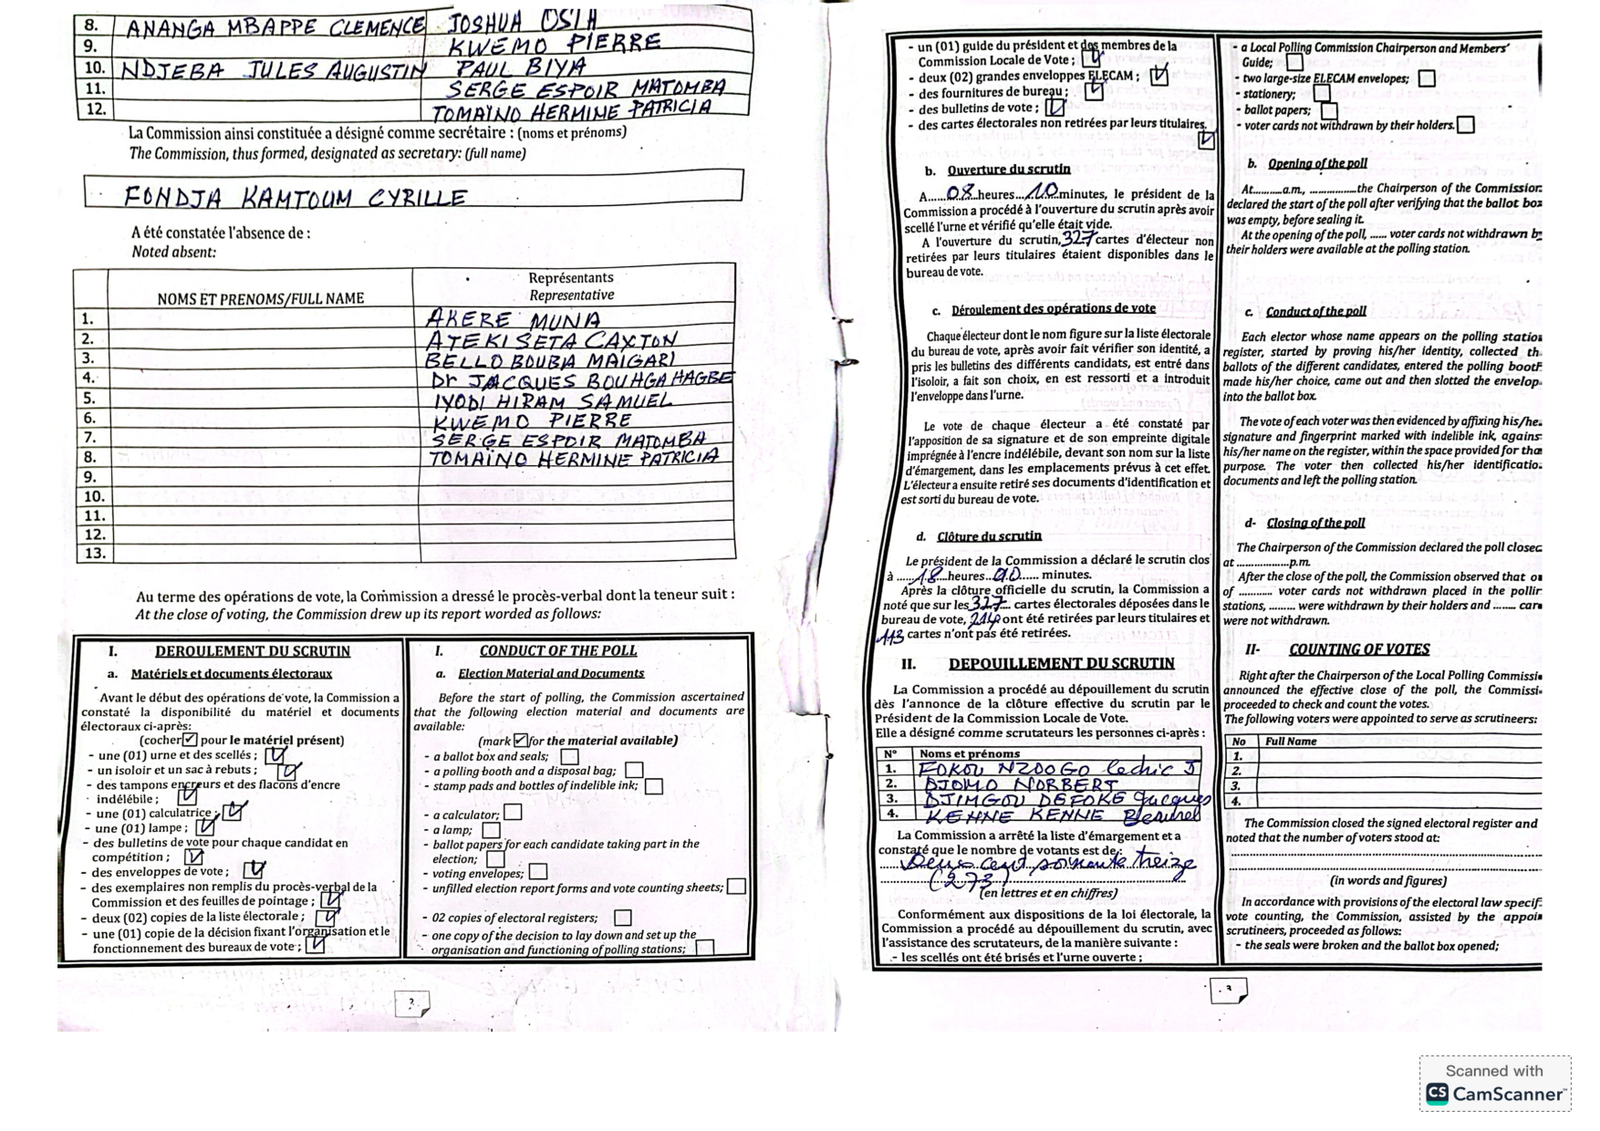 8. ANANGA MBAPPE CLEMENCE JOSHUA OSIH
9. KWEMO PIERRE
10. NDJEBA JULES AUGUSTIN PAUL BIYA
11. SERGE ESPOIR MATOMBA
12. TOMAÏNO HERMINE PATRICIA
La Commission ainsi constituée a désigné comme secrétaire : (noms et prénoms)
The Commission, thus formed, designated as secretary: (full name)
FONDJA KAMTOUM CYRILLE
A été constatée l'absence de :
Noted absent:
NOMS ET PRENOMS/FULL NAME
Représentants
Representative
1. AKERE MUNA
2. ATEKI SETA CAXTON
3. BELLO BOUBA MAIGARI
4. Dr JACQUES BOUHGA HAGBE
5. IYODI HIRAM SAMUEL
6. KWEMO PIERRE
7. SERGE ESPOIR MATOMBA
8. TOMAÏNO HERMINE PATRICIA
9.
10.
11.
12.
13.
Au terme des opérations de vote, la Commission a dressé le procès-verbal dont la teneur suit :
At the close of voting, the Commission drew up its report worded as follows:
I. DEROULEMENT DU SCRUTIN
a. Matériels et documents électoraux
Avant le début des opérations de vote, la Commission a
constaté la disponibilité du matériel et documents
électoraux ci-après:
(cocher ☑ pour le matériel présent)
- une (01) urne et des scellés ; ☑
- un isoloir et un sac à rebuts ; ☑
- des tampons encreurs et des flacons d'encre
indélébile ; ☑
- une (01) calculatrice ; ☑
- une (01) lampe ; ☑
- des bulletins de vote pour chaque candidat en
compétition ; ☑
- des enveloppes de vote ; ☑
- des exemplaires non remplis du procès-verbal de la
Commission et des feuilles de pointage ; ☑
- deux (02) copies de la liste électorale ; ☑
- une (01) copie de la décision fixant l'organisation et le
fonctionnement des bureaux de vote ; ☑
I. CONDUCT OF THE POLL
a. Election Material and Documents
Before the start of polling, the Commission ascertained
that the following election material and documents are
available:
(mark ☑ for the material available)
- a ballot box and seals; ☐
- a polling booth and a disposal bag; ☐
- stamp pads and bottles of indelible ink; ☐
- a calculator; ☐
- a lamp; ☐
- ballot papers for each candidate taking part in the
election; ☐
- voting envelopes; ☐
- unfilled election report forms and vote counting sheets; ☐
- 02 copies of electoral registers; ☐
- one copy of the decision to lay down and set up the
organisation and functioning of polling stations; ☐
- un (01) guide du président et des membres de la
Commission Locale de Vote ; ☑
- deux (02) grandes enveloppes ELECAM ; ☑
- des fournitures de bureau ; ☑
- des bulletins de vote ; ☑
- des cartes électorales non retirées par leurs titulaires. ☑
b. Ouverture du scrutin
A......08.heures...10.minutes, le président de la
Commission a procédé à l'ouverture du scrutin après avoir
scellé l'urne et vérifié qu'elle était vide.
A l'ouverture du scrutin, 327 cartes d'électeur non
retirées par leurs titulaires étaient disponibles dans le
bureau de vote.
c. Déroulement des opérations de vote
Chaque électeur dont le nom figure sur la liste électorale
du bureau de vote, après avoir fait vérifier son identité, a
pris les bulletins des différents candidats, est entré dans
l'isoloir, a fait son choix, en est ressorti et a introduit
l'enveloppe dans l'urne.
Le vote de chaque électeur a été constaté par
l'apposition de sa signature et de son empreinte digitale
imprégnée à l'encre indélébile, devant son nom sur la liste
d'émargement, dans les emplacements prévus à cet effet.
L'électeur a ensuite retiré ses documents d'identification et
est sorti du bureau de vote.
d. Clôture du scrutin
Le président de la Commission a déclaré le scrutin clos
à ......18.heures...00...... minutes.
Après la clôture officielle du scrutin, la Commission a
noté que sur les 327 cartes électorales déposées dans le
bureau de vote, 214 ont été retirées par leurs titulaires et
113 cartes n'ont pas été retirées.
II. DEPOUILLEMENT DU SCRUTIN
La Commission a procédé au dépouillement du scrutin
dès l'annonce de la clôture effective du scrutin par le
Président de la Commission Locale de Vote.
Elle a désigné comme scrutateurs les personnes ci-après :
N° Noms et prénoms
1. FOKOU NZOOGO J
2. DJOMO NORBERT
3. DJIMGOU DEFOKE Jacques
4. KEHNE KENNE
La Commission a arrêté la liste d'émargement et a
constaté que le nombre de votants est de :
Deux cent soixante treize
(273)
(en lettres et en chiffres)
Conformément aux dispositions de la loi électorale, la
Commission a procédé au dépouillement du scrutin, avec
l'assistance des scrutateurs, de la manière suivante :
- les scellés ont été brisés et l'urne ouverte ;
- a Local Polling Commission Chairperson and Members'
Guide; ☐
- two large-size ELECAM envelopes; ☐
- stationery; ☐
- ballot papers; ☐
- voter cards not withdrawn by their holders. ☐
b. Opening of the poll
At.........a.m., ...............the Chairperson of the Commission
declared the start of the poll after verifying that the ballot box
was empty, before sealing it.
At the opening of the poll, ...... voter cards not withdrawn by
their holders were available at the polling station.
c. Conduct of the poll
Each elector whose name appears on the polling station
register, started by proving his/her identity, collected th
ballots of the different candidates, entered the polling booth
made his/her choice, came out and then slotted the envelop
into the ballot box.
The vote of each voter was then evidenced by affixing his/he
signature and fingerprint marked with indelible ink, agains
his/her name on the register, within the space provided for tha
purpose. The voter then collected his/her identificatio
documents and left the polling station.
d- Closing of the poll
The Chairperson of the Commission declared the poll closed
at .................p.m.
After the close of the poll, the Commission observed that o
of ........... voter cards not withdrawn placed in the pollin
stations, ......... were withdrawn by their holders and ........ car
were not withdrawn.
II- COUNTING OF VOTES
Right after the Chairperson of the Local Polling Commissi
announced the effective close of the poll, the Commissi
proceeded to check and count the votes.
The following voters were appointed to serve as scrutineers:
No Full Name
1.
2.
3.
4.
The Commission closed the signed electoral register and
noted that the number of voters stood at:
(in words and figures)
In accordance with provisions of the electoral law specif
vote counting, the Commission, assisted by the appoi
scrutineers, proceeded as follows:
- the seals were broken and the ballot box opened;
3
Scanned with
CS CamScanner